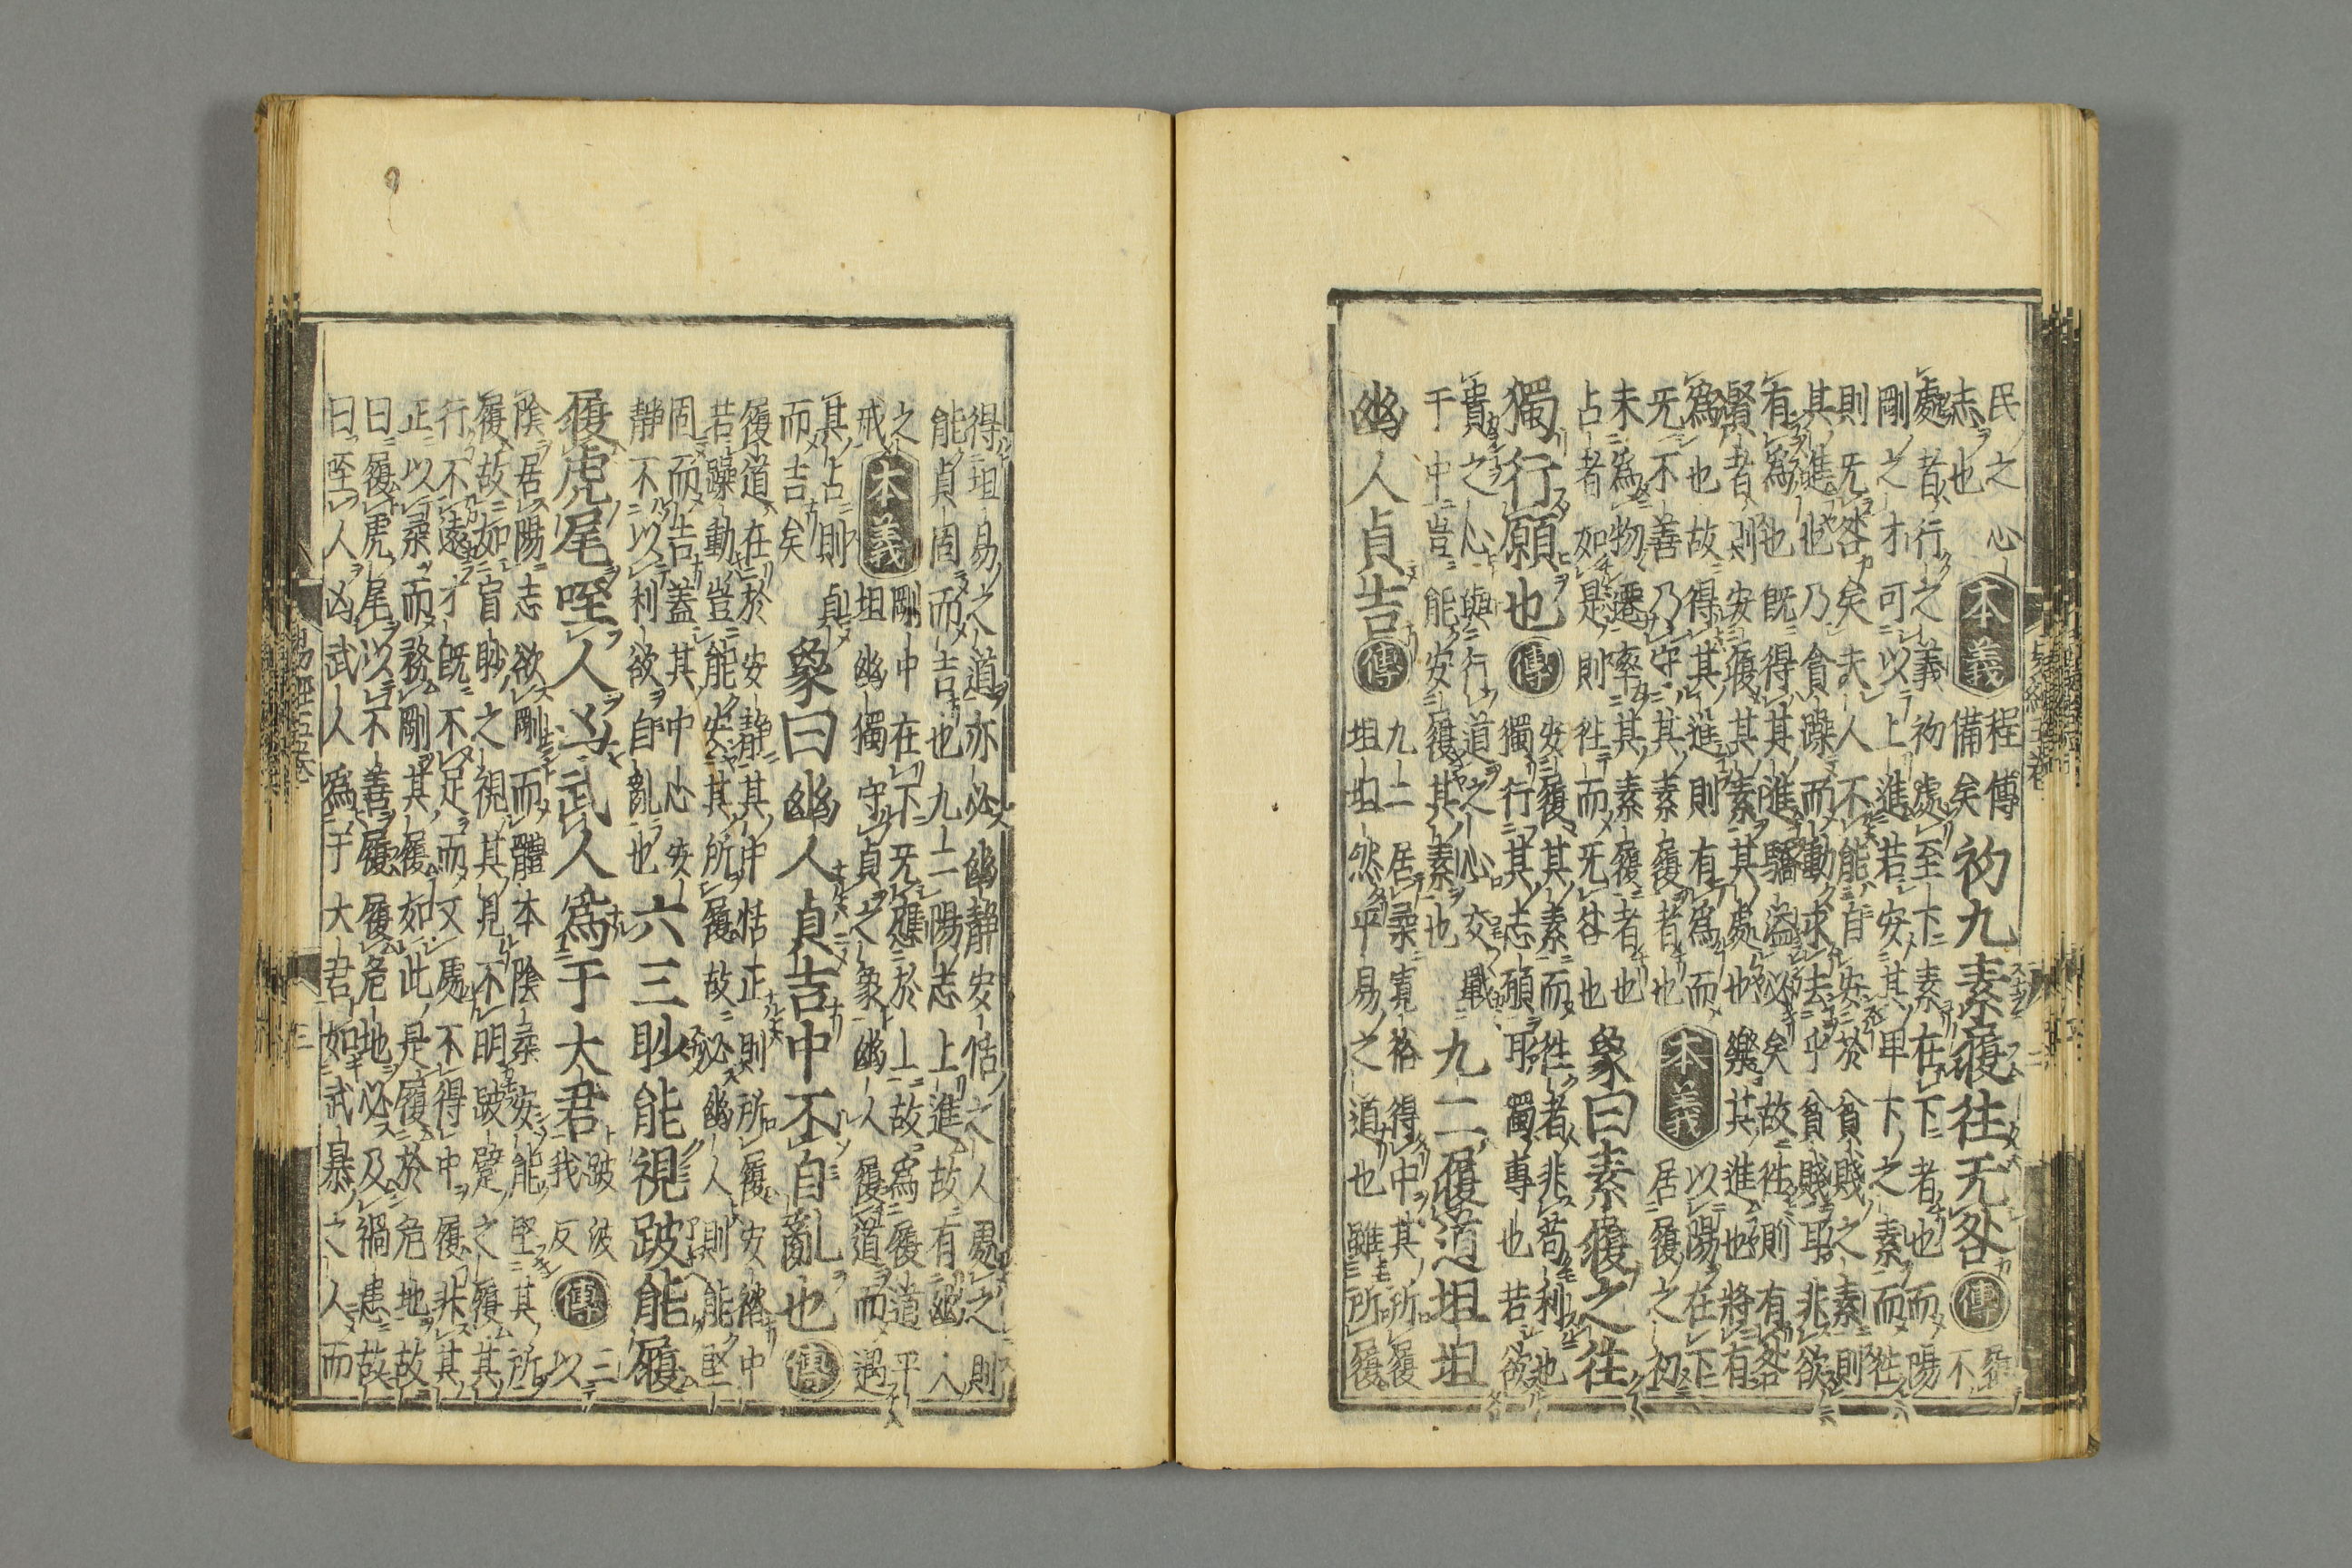 民之心
志也
本義
程傳
備矣
初九素履往无咎
傳
履
不
處者行之義初處至下素在下者也而陽
剛之才可以上進若安其卑下之素而往
則无咎矣夫人不能自安於貧賤之素則
其進也乃貪躁而動求去乎貧賤耳非欲
有為也既得其進驕溢必矣故往則有咎
賢者則安履其素其處也樂其進也將有
為也故得其進則有為而
无不善乃守其素履者也
本義
以陽在下
居履之初
未為物遷率其素履者也
占者如是則往而无咎也
象曰素履之往
獨行願也
傳
安履其素而往者非苟利也
獨行其志願耳獨專也若欲
貴之心與行道之心交戰
于中豈能安履其素也
九二履道坦坦
幽人貞吉
傳
九二居柔寬裕得中其所履
坦坦然平易之道也雖所履
得坦易之道亦必幽靜安恬之人處之則
能貞固而吉也九二陽志上進故有幽人
之
戒
本義
剛中在下无應於上故為履道平
坦幽獨守貞之象幽人履道而遇
其占則貞
而吉矣
象曰幽人貞吉中不自亂也
傳
履道在於安靜其中恬正則所履安裕中
若躁動豈能安其所履故必幽人則能堅
固而吉蓋其中心安
靜不以利欲自亂也
六三眇能視跛能履
履虎尾咥人凶武人為于大君
跛波
我反
傳
三
以
陰居陽志欲剛而體本陰柔安能堅其所
履故如盲眇之視其見不明跛躄之履其
行不遠才既不足而又處不得中履非其
正以柔而務剛其履如此是履於危地故
曰履虎尾以不善履履危地必及禍患故
曰咥人凶武人為于大君如武暴之人而
易經五卷
三